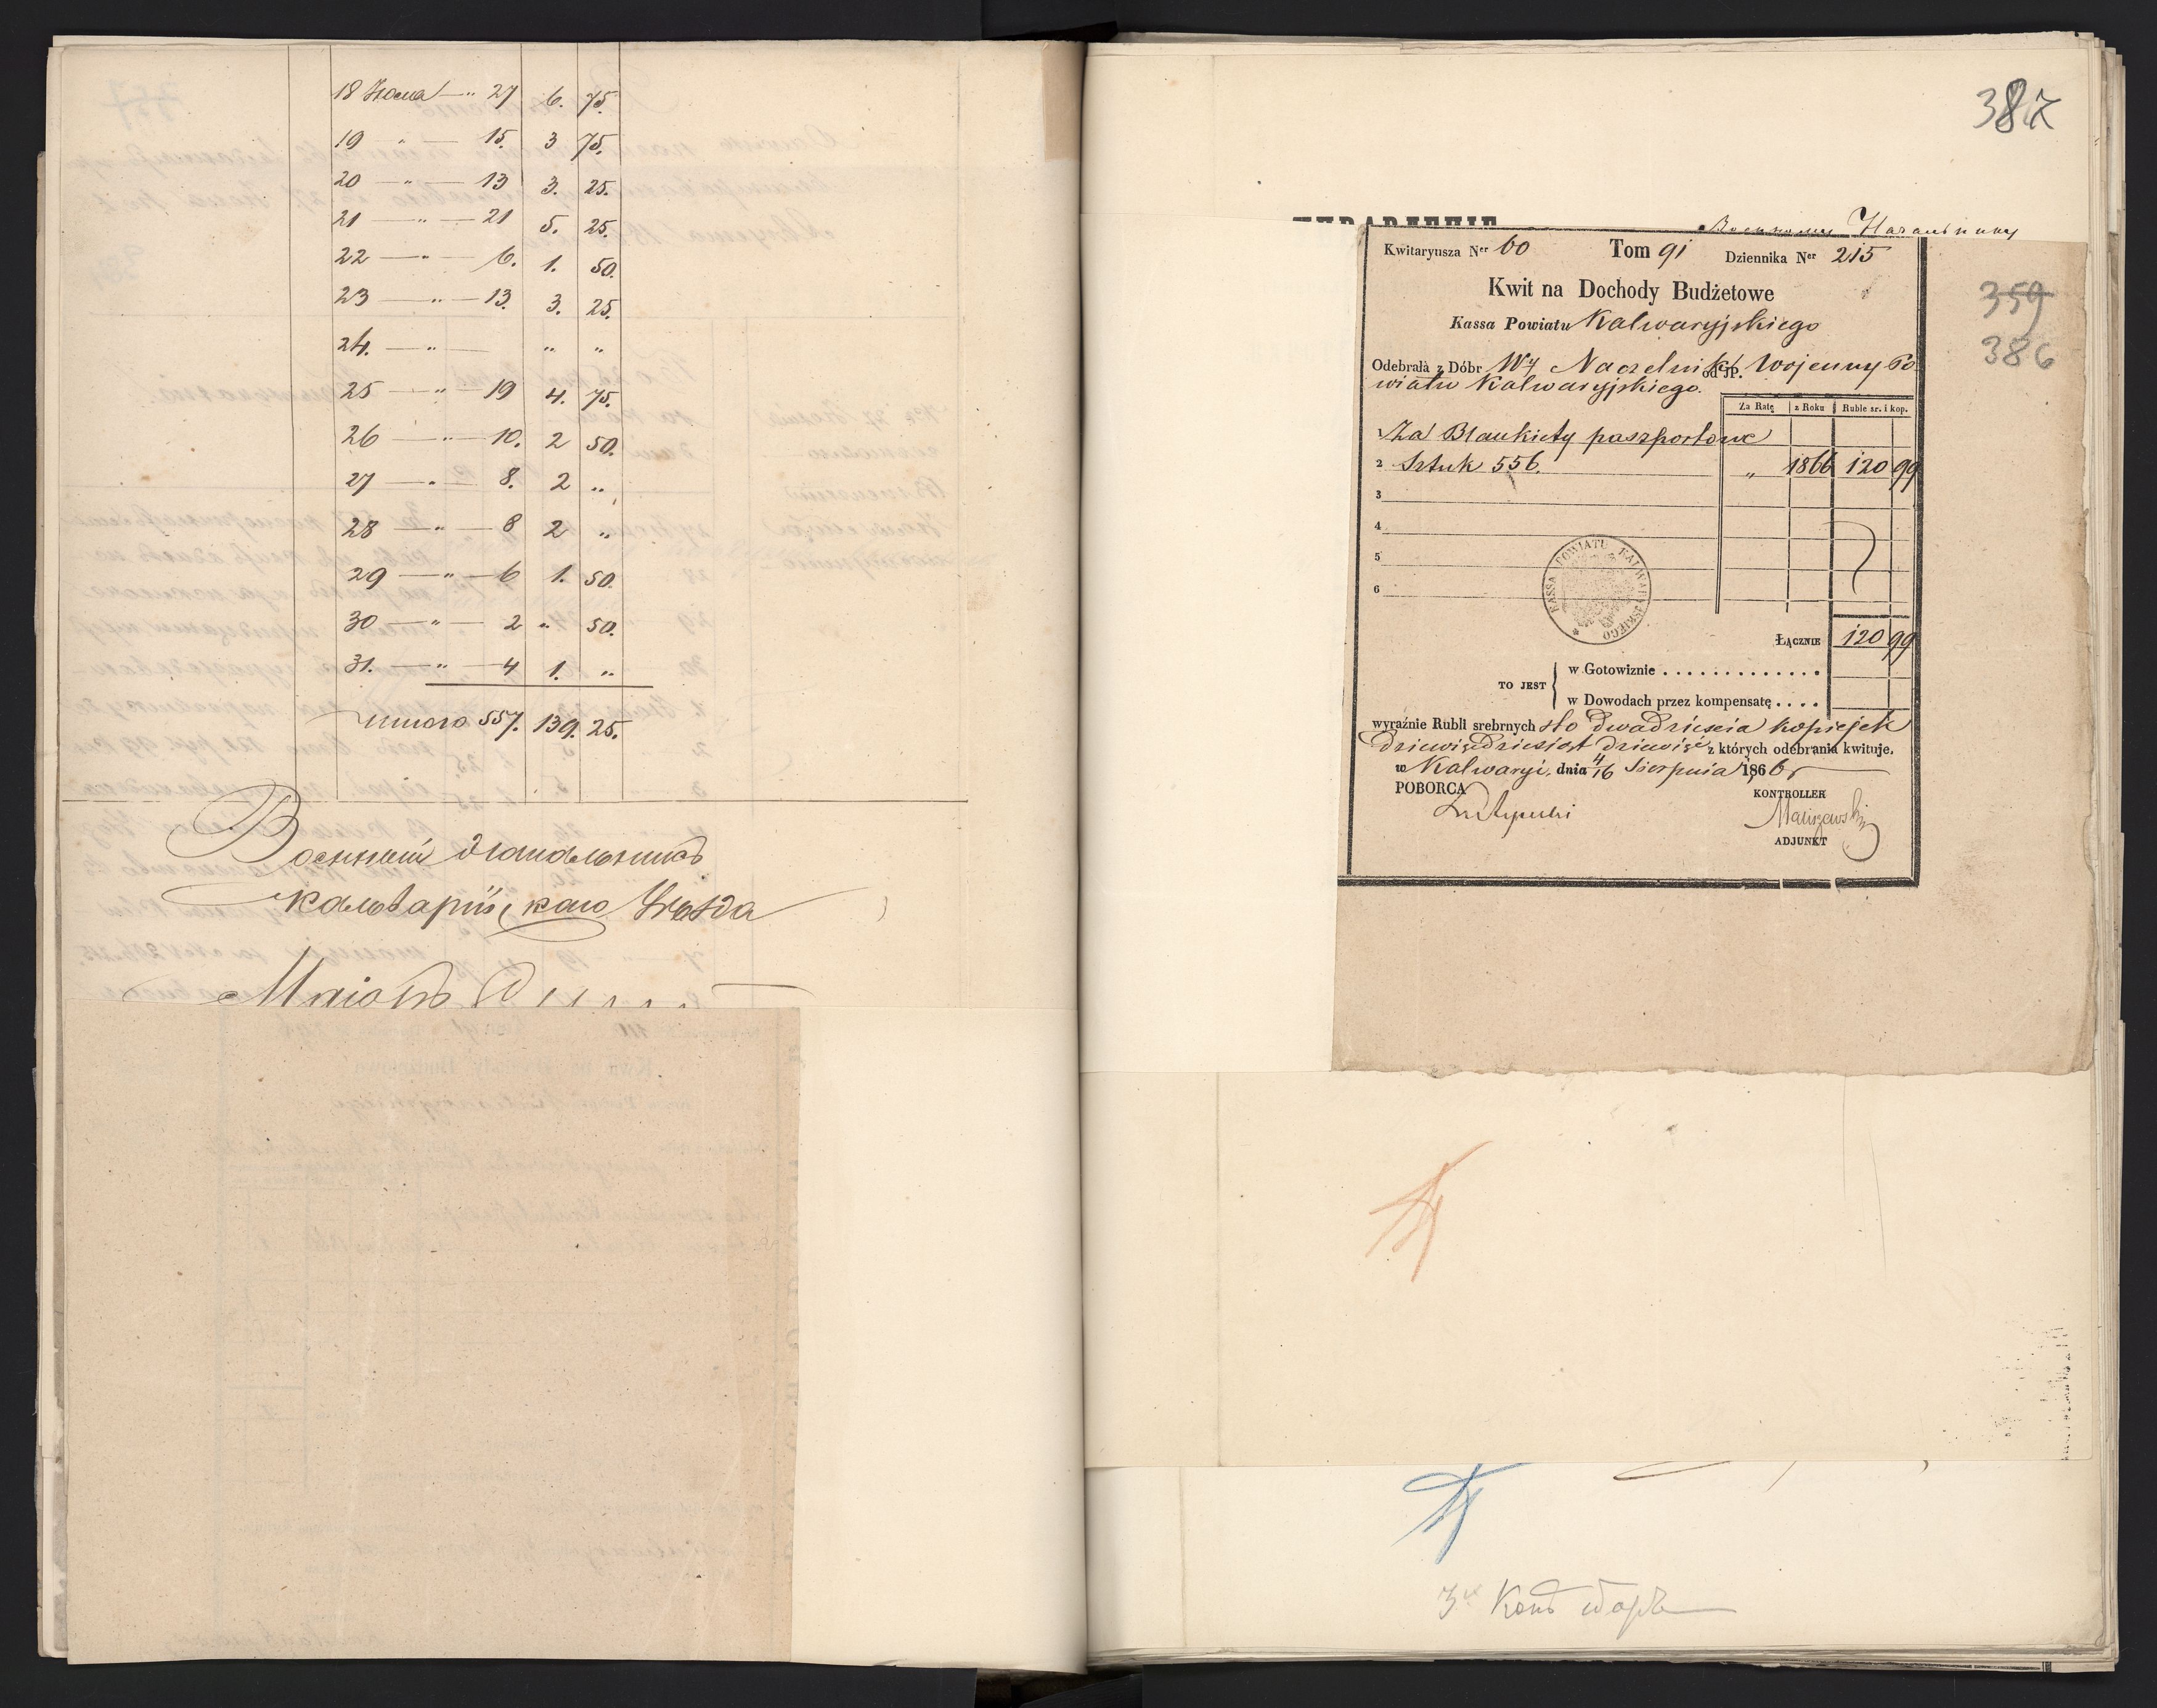 18 Іюля — „ 27 6. 75.
19 „ — 15. 3 75.
20 — „ — 13 3. 25.
21 — „ — 21 5. 25.
22 — „ — 6. 1. 50.
23 — „ — 13. 3. 25.
24. — „ — „ „
25 — „ — 19 4. 75.
26 — „ — 10. 2 50.
27 — „ — 8. 2 „
28 — „ — 8 2 „
29 — „ — 6 1. 50.
30 — „ — 2 „ 50.
31. — „ — 4 1. „
Итого 557. 139. 25.
Военный Начальникъ
Кальварійскаго Уѣзда
Маіоръ
387
Военному Начальнику
359
386
Kwitaryusza Ner 60 Tom 91 Dziennika Ner 215
Kwit na Dochody Budżetowe
Kassa Powiatu Kalwaryjskiego
Odebrała z Dóbr Wy Naczelnik od JP. Wojenny Po
wiatu Kalwaryjskiego.
Za Ratę z Roku Ruble sr. i kop.
Za Blankiety paszportowe
2 Sztuk 556. „ 1866 120 99
3
4
5
6
KASSA POWIATU KALWARYJSKIEGO
ŁĄCZNIE 120 99
TO JEST
w Gotowiznie . . . . . . . . . . . . .
w Dowodach przez kompensatę . . . .
wyraźnie Rubli srebrnych sto dwadzieścia kopiejek
dziewięćdziesiąt dziewięć z których odebrania kwituje.
w Kalwaryi, dnia 4/16 Sierpnia 1866 r
POBORCA KONTROLLER
Maliszewski
ADJUNKT